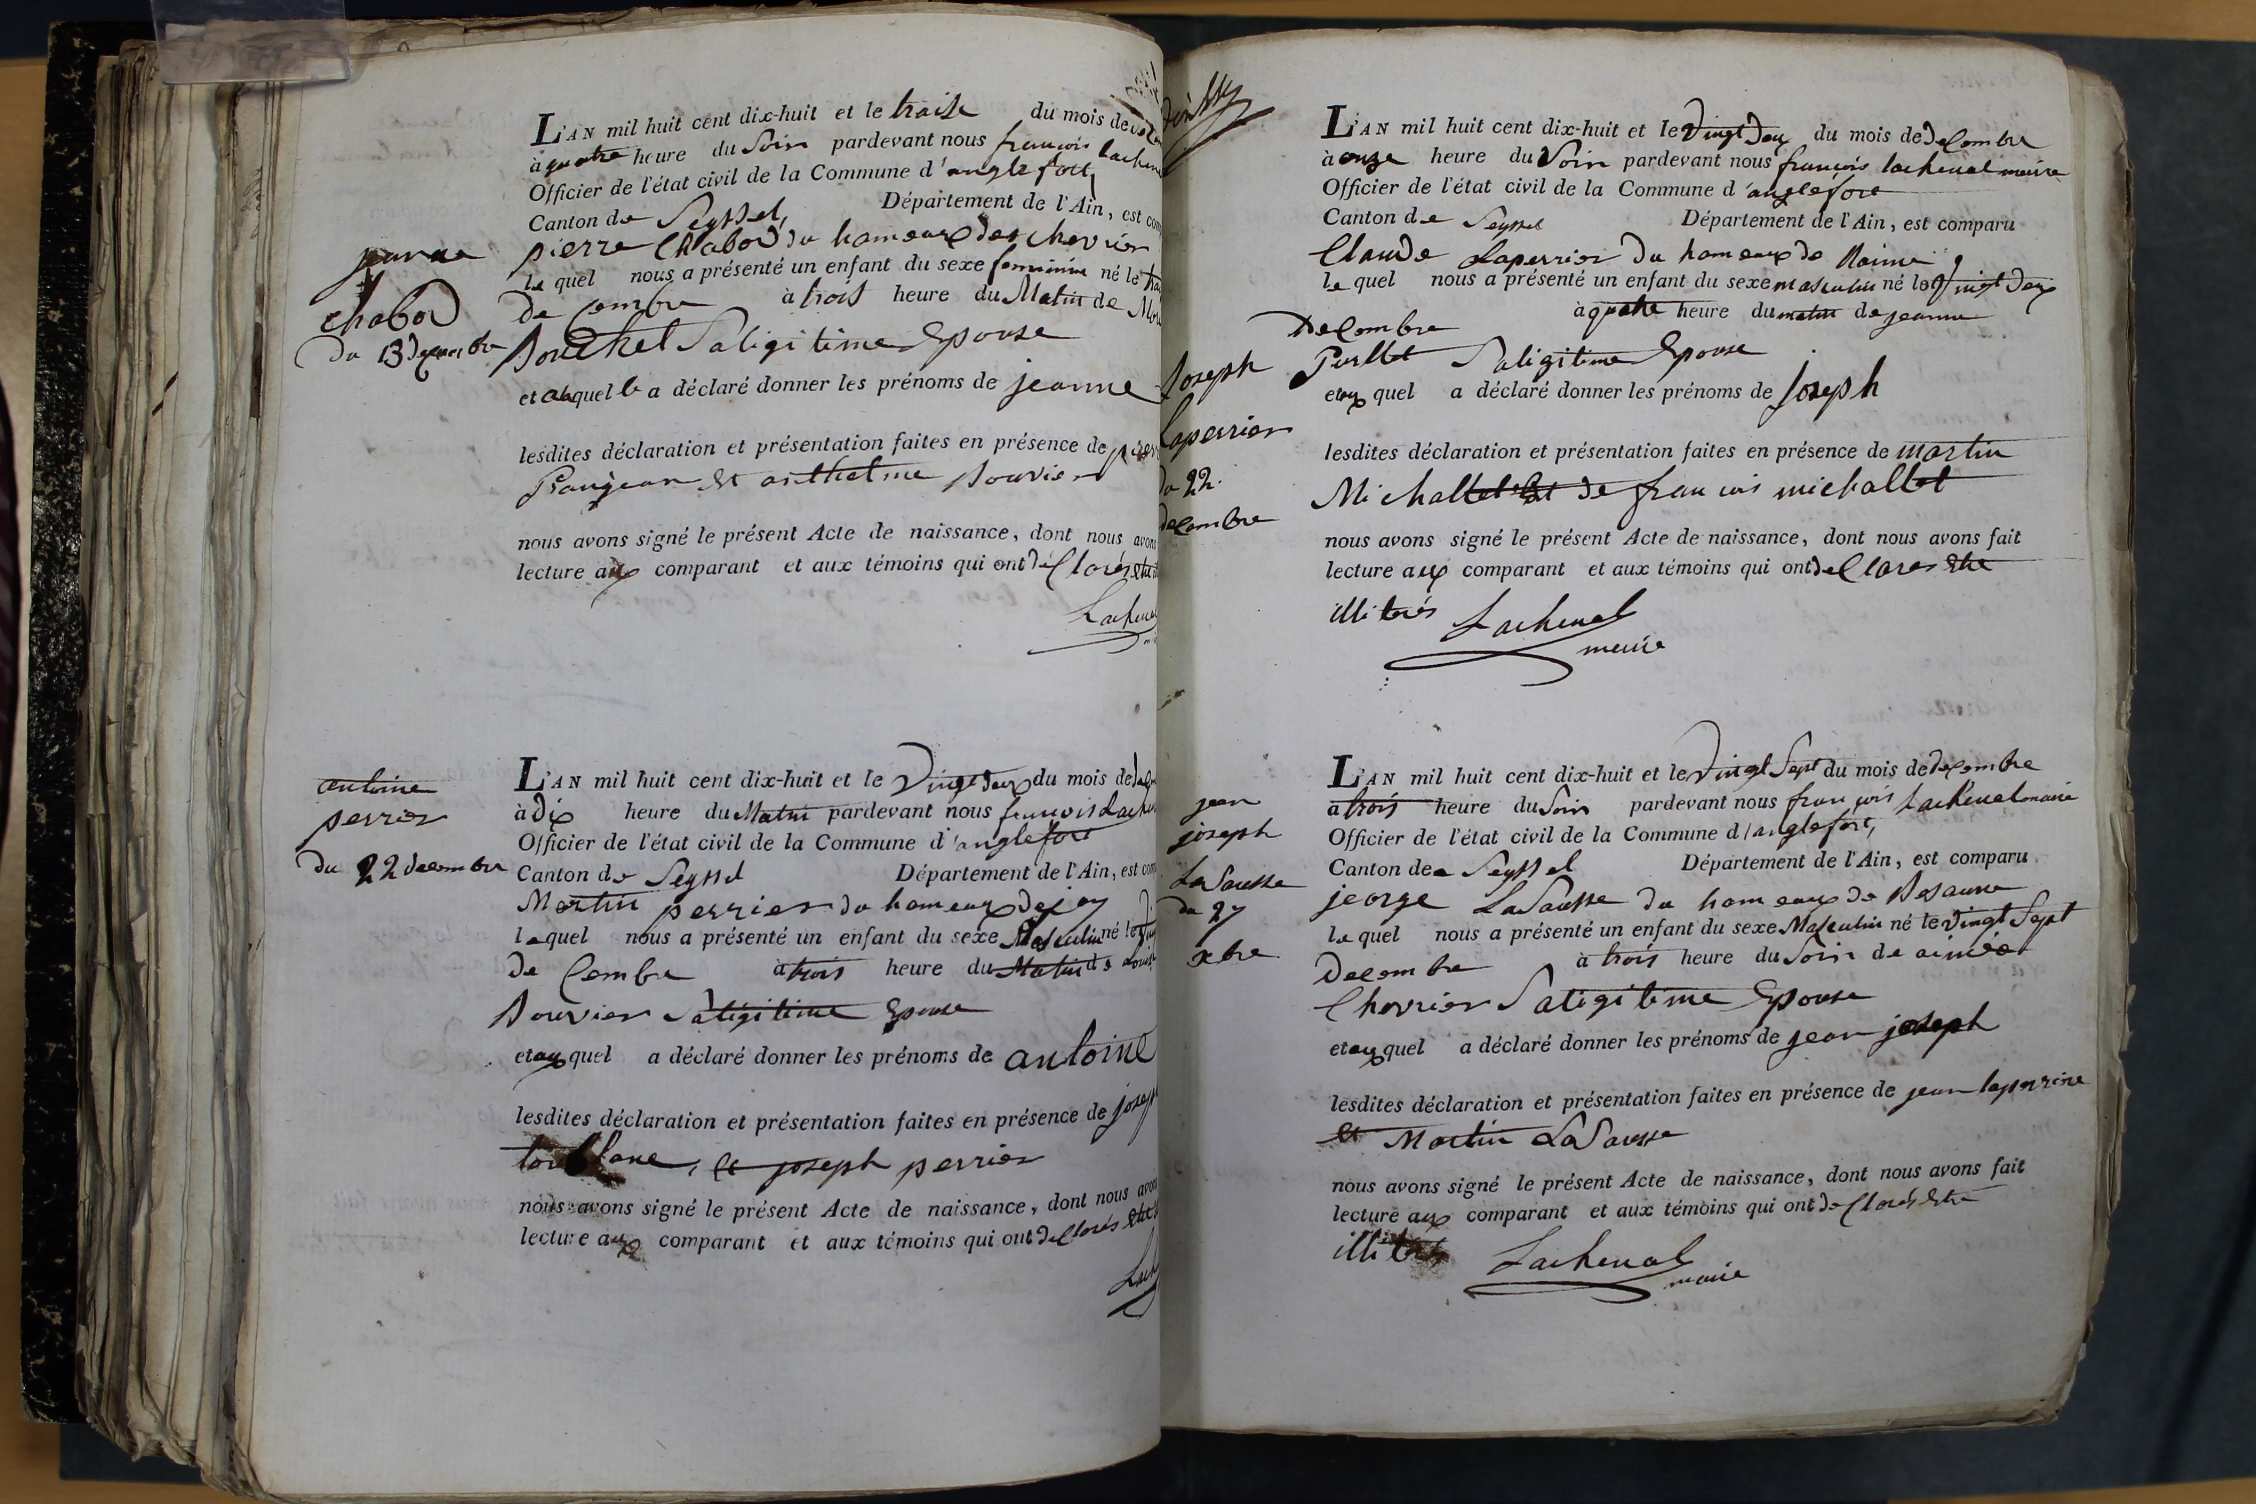 L'AN mil huit cent dix-huit et le traise du mois de
à quatre heure du Soir pardevant nous françois lachen
Officier de l'état civil de la Commune d'anglefort
Canton de Seyssel, Département de l'Ain, est com
pierre Chabod du hameaux des chevrier
le quel nous a présenté un enfant du sexe feminin né le
de Cembre à trois heure du Matin de
Bouchet Saligitime Epouse
et a laquelle a déclaré donner les prénoms de jeanne
lesdites déclaration et présentation faites en présence de
Prangean et anthelme Bouvier
nous avons signé le présent Acte de naissance, dont nous avons
lecture aux comparant et aux témoins qui ont déClarés
Lachenal
jeanne
chabod
du 13 decembre
L'AN mil huit cent dix-huit et le Vingt deux du mois de
à dix heure du Matin pardevant nous françois Lachen
Officier de l'état civil de la Commune d'anglefort
Canton de Seyssel Département de l'Ain, est com
Martin perrier du hameaux de joy
lequel nous a présenté un enfant du sexe Masculin né le
de Cembre à trois heure du Matin de Louise
Bouvier Saligitime Epouse
et aux quel a déclaré donner les prénoms de antoine
lesdites déclaration et présentation faites en présence de joseph
et joseph perrier
nous avons signé le présent Acte de naissance, dont nous avons
lecture aux comparant et aux témoins qui ont déClarés
Lach
antoine
perrier
du 22 decembre
L'AN mil huit cent dix-huit et le Vingt deux du mois de deCembre
à onze heure du Soir pardevant nous françois lachenal maire
Officier de l'état civil de la Commune d'anglefort
Canton de Seyssel Département de l'Ain, est comparu
Claude Laperrier du hameaux de
le quel nous a présenté un enfant du sexe masculin né le Vingt deux
DeCembre à quatre heure du matin de jeanne
Saligitime Epouse
et aux quel a déclaré donner les prénoms de joseph
lesdites déclaration et présentation faites en présence de martin
Michallet et de françois michallet
nous avons signé le présent Acte de naissance, dont nous avons fait
lecture aux comparant et aux témoins qui ont deClares etre
illitrés Lachenal
maire
joseph
Laperrier
du 22
deCembre
L'AN mil huit cent dix-huit et le Vingt Sept du mois de deCembre
à trois heure du Soir pardevant nous françois Lachenal maire
Officier de l'état civil de la Commune d'anglefort,
Canton de Seyssel Département de l'Ain, est comparu
jeorge LaSausse du hameaux de
le quel nous a présenté un enfant du sexe Masculin né le Vingt Sept
Decembre à trois heure du Soir de aimée
Chevrier Saligitime Epouse
et aux quel a déclaré donner les prénoms de jean joseph
lesdites déclaration et présentation faites en présence de jean laperrire
et Martin LaSausse
nous avons signé le présent Acte de naissance, dont nous avons fait
lecture aux comparant et aux témoins qui ont deClarés etre
illitrés Lachenal
maire
jean
joseph
LaSausse
du 27
xbre